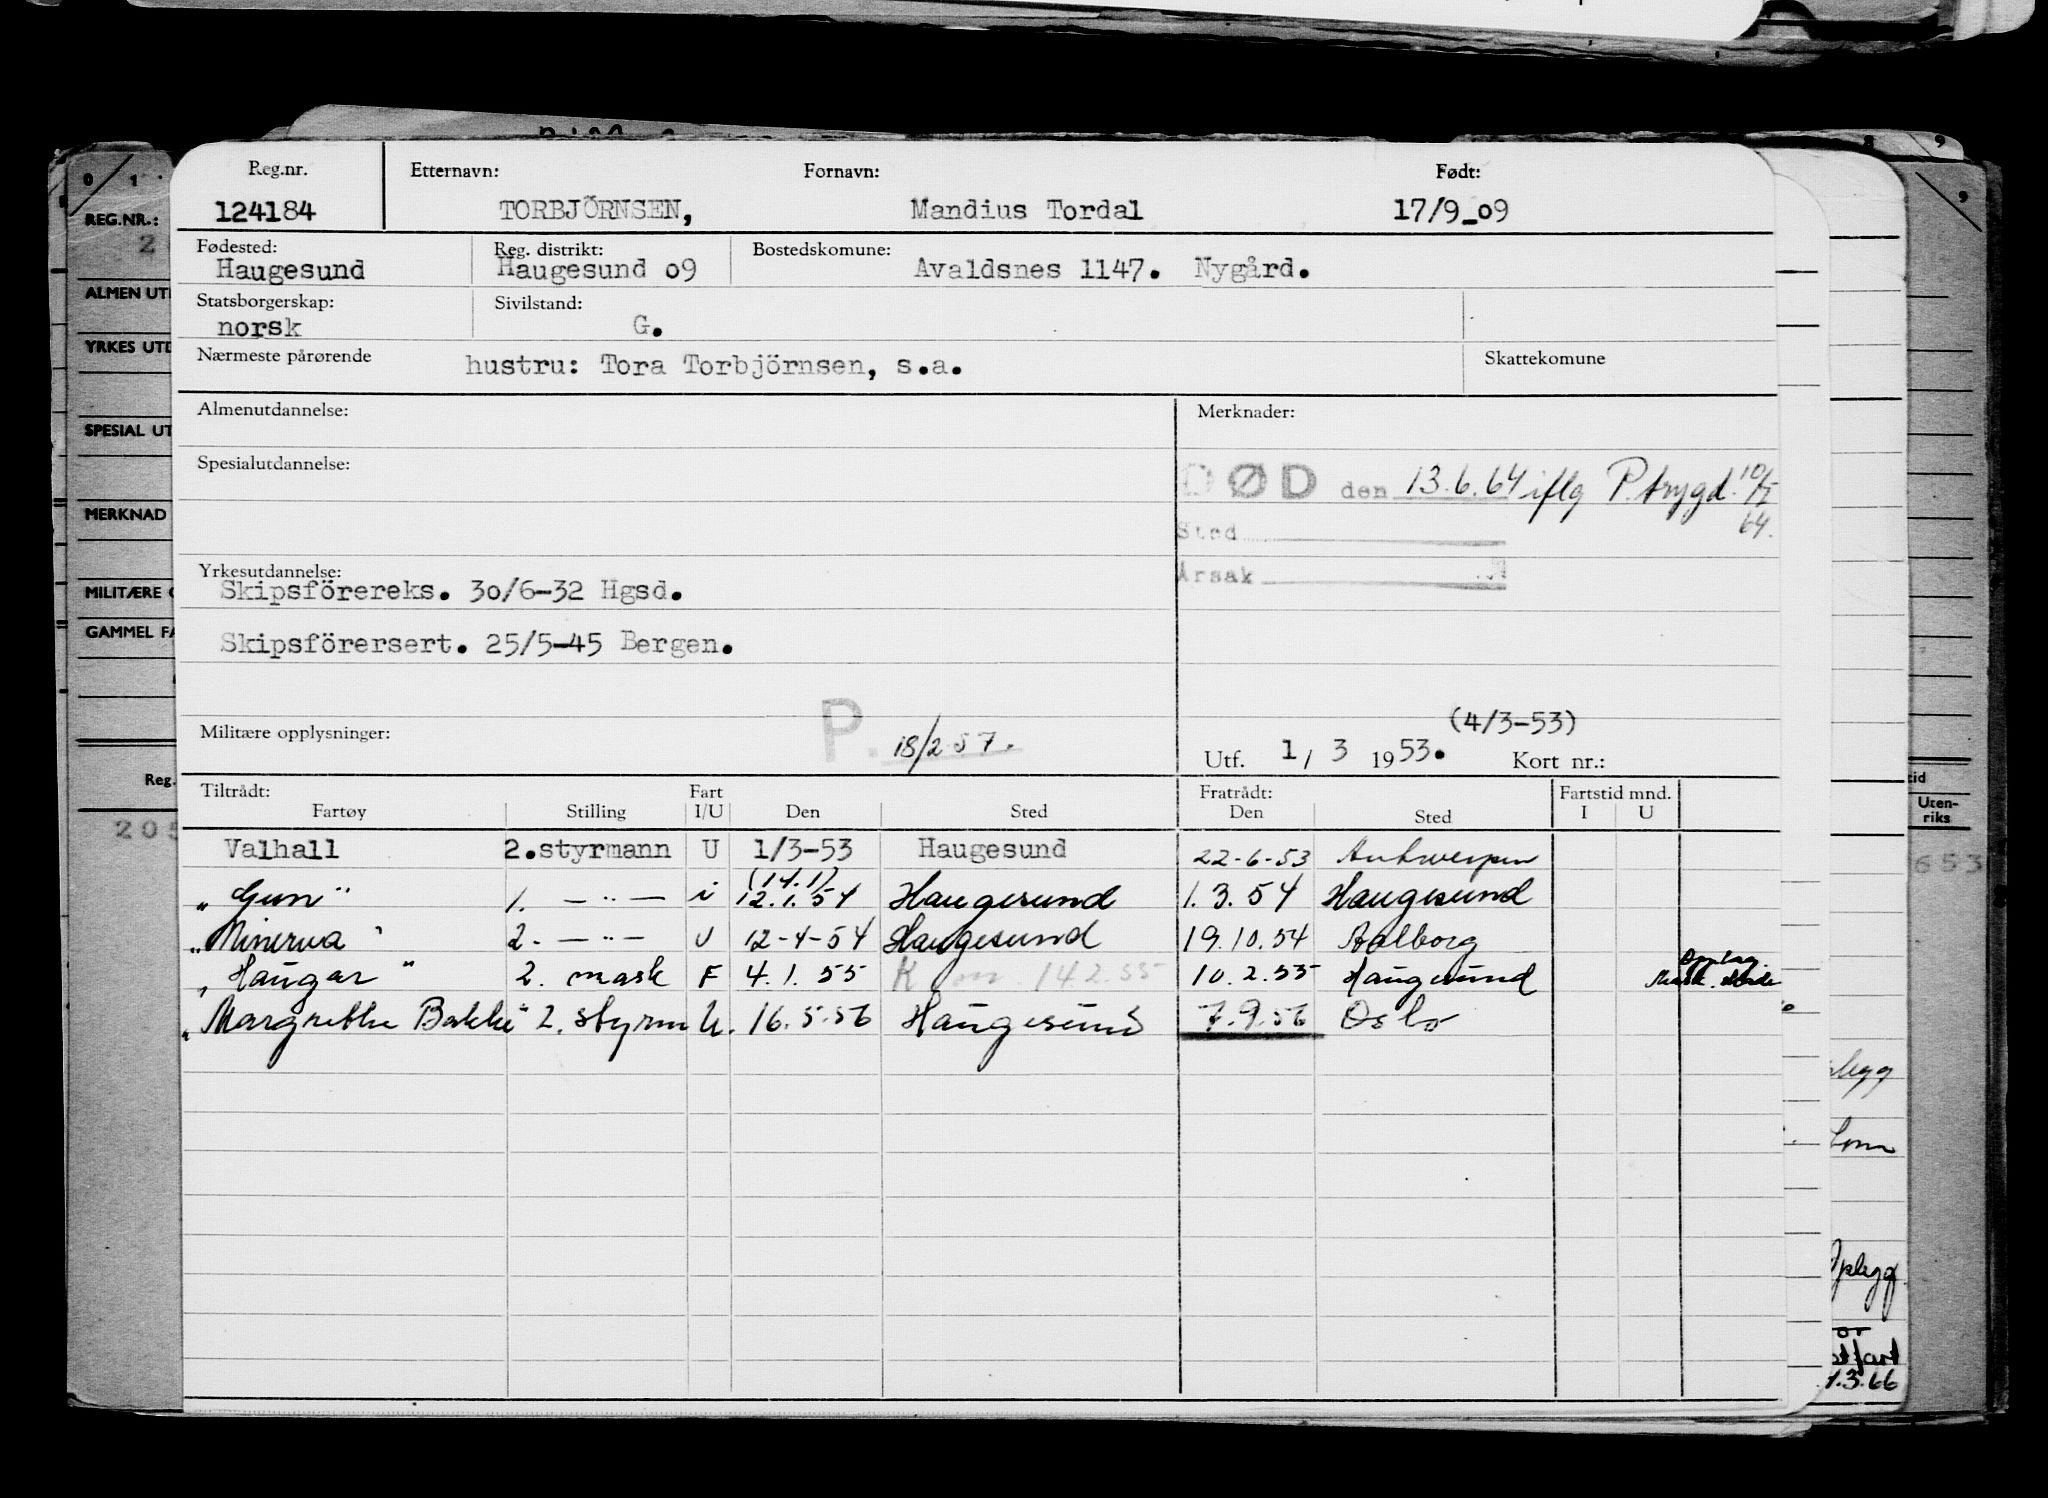 Reg.nr. Etternavn: Fornavn: Født:
124184 TORBJÖRNSEN, Mandius Tordal 17/9-09
Fødested: Reg. distrikt: Bostedskomune:
Haugesund Haugesund 09 Avaldsnes 1147. Nygård.
Statsborgerskap: Sivilstand:
norsk G.
Nærmeste pårørende hustru: Tora Torbjörnsen, s.a. Skattekomune
Almenutdannelse: Merknader:
Spesialutdannelse:
DØD den 13.6.64 iflg P.trygd. 10/7
64.
Sted
Årsak
Yrkesutdannelse:
Skipsförereks. 30/6-32 Hgsd.
Skipsförersert. 25/5-45 Bergen.
Militære opplysninger: P. 18/2 57.
(4/3-53)
Utf. 1/ 3 1953. Kort nr.:
Tiltrådt: Fart Fratrådt: Fartstid mnd.
Fartøy Stilling I/U Den Sted Den Sted I U
Valhall 2.styrmann U 1/3-53 Haugesund 22-6-53 Antwerpen
(14.1)
"Gun" 1. — " — i 12.1.54 Haugesund 1.3.54 Haugesund
"Minerva" 2. — " — U 12-4-54 Haugesund 19.10.54 Aalborg
"Haugar" 2. mask F 4.1.55 K 14 2.55 10.2.55 Haugesund
"Margrethe Bakke" 2. styrm U. 16.5.56 Haugesund 7.9.56 Oslo
0 1
REG.NR.:
2
ALMEN UT
YRKES UTD
SPESIAL UT
MERKNAD
MILITÆRE
GAMMEL FA
Reg.
205
8 9
9
tid
Uten-
riks
653